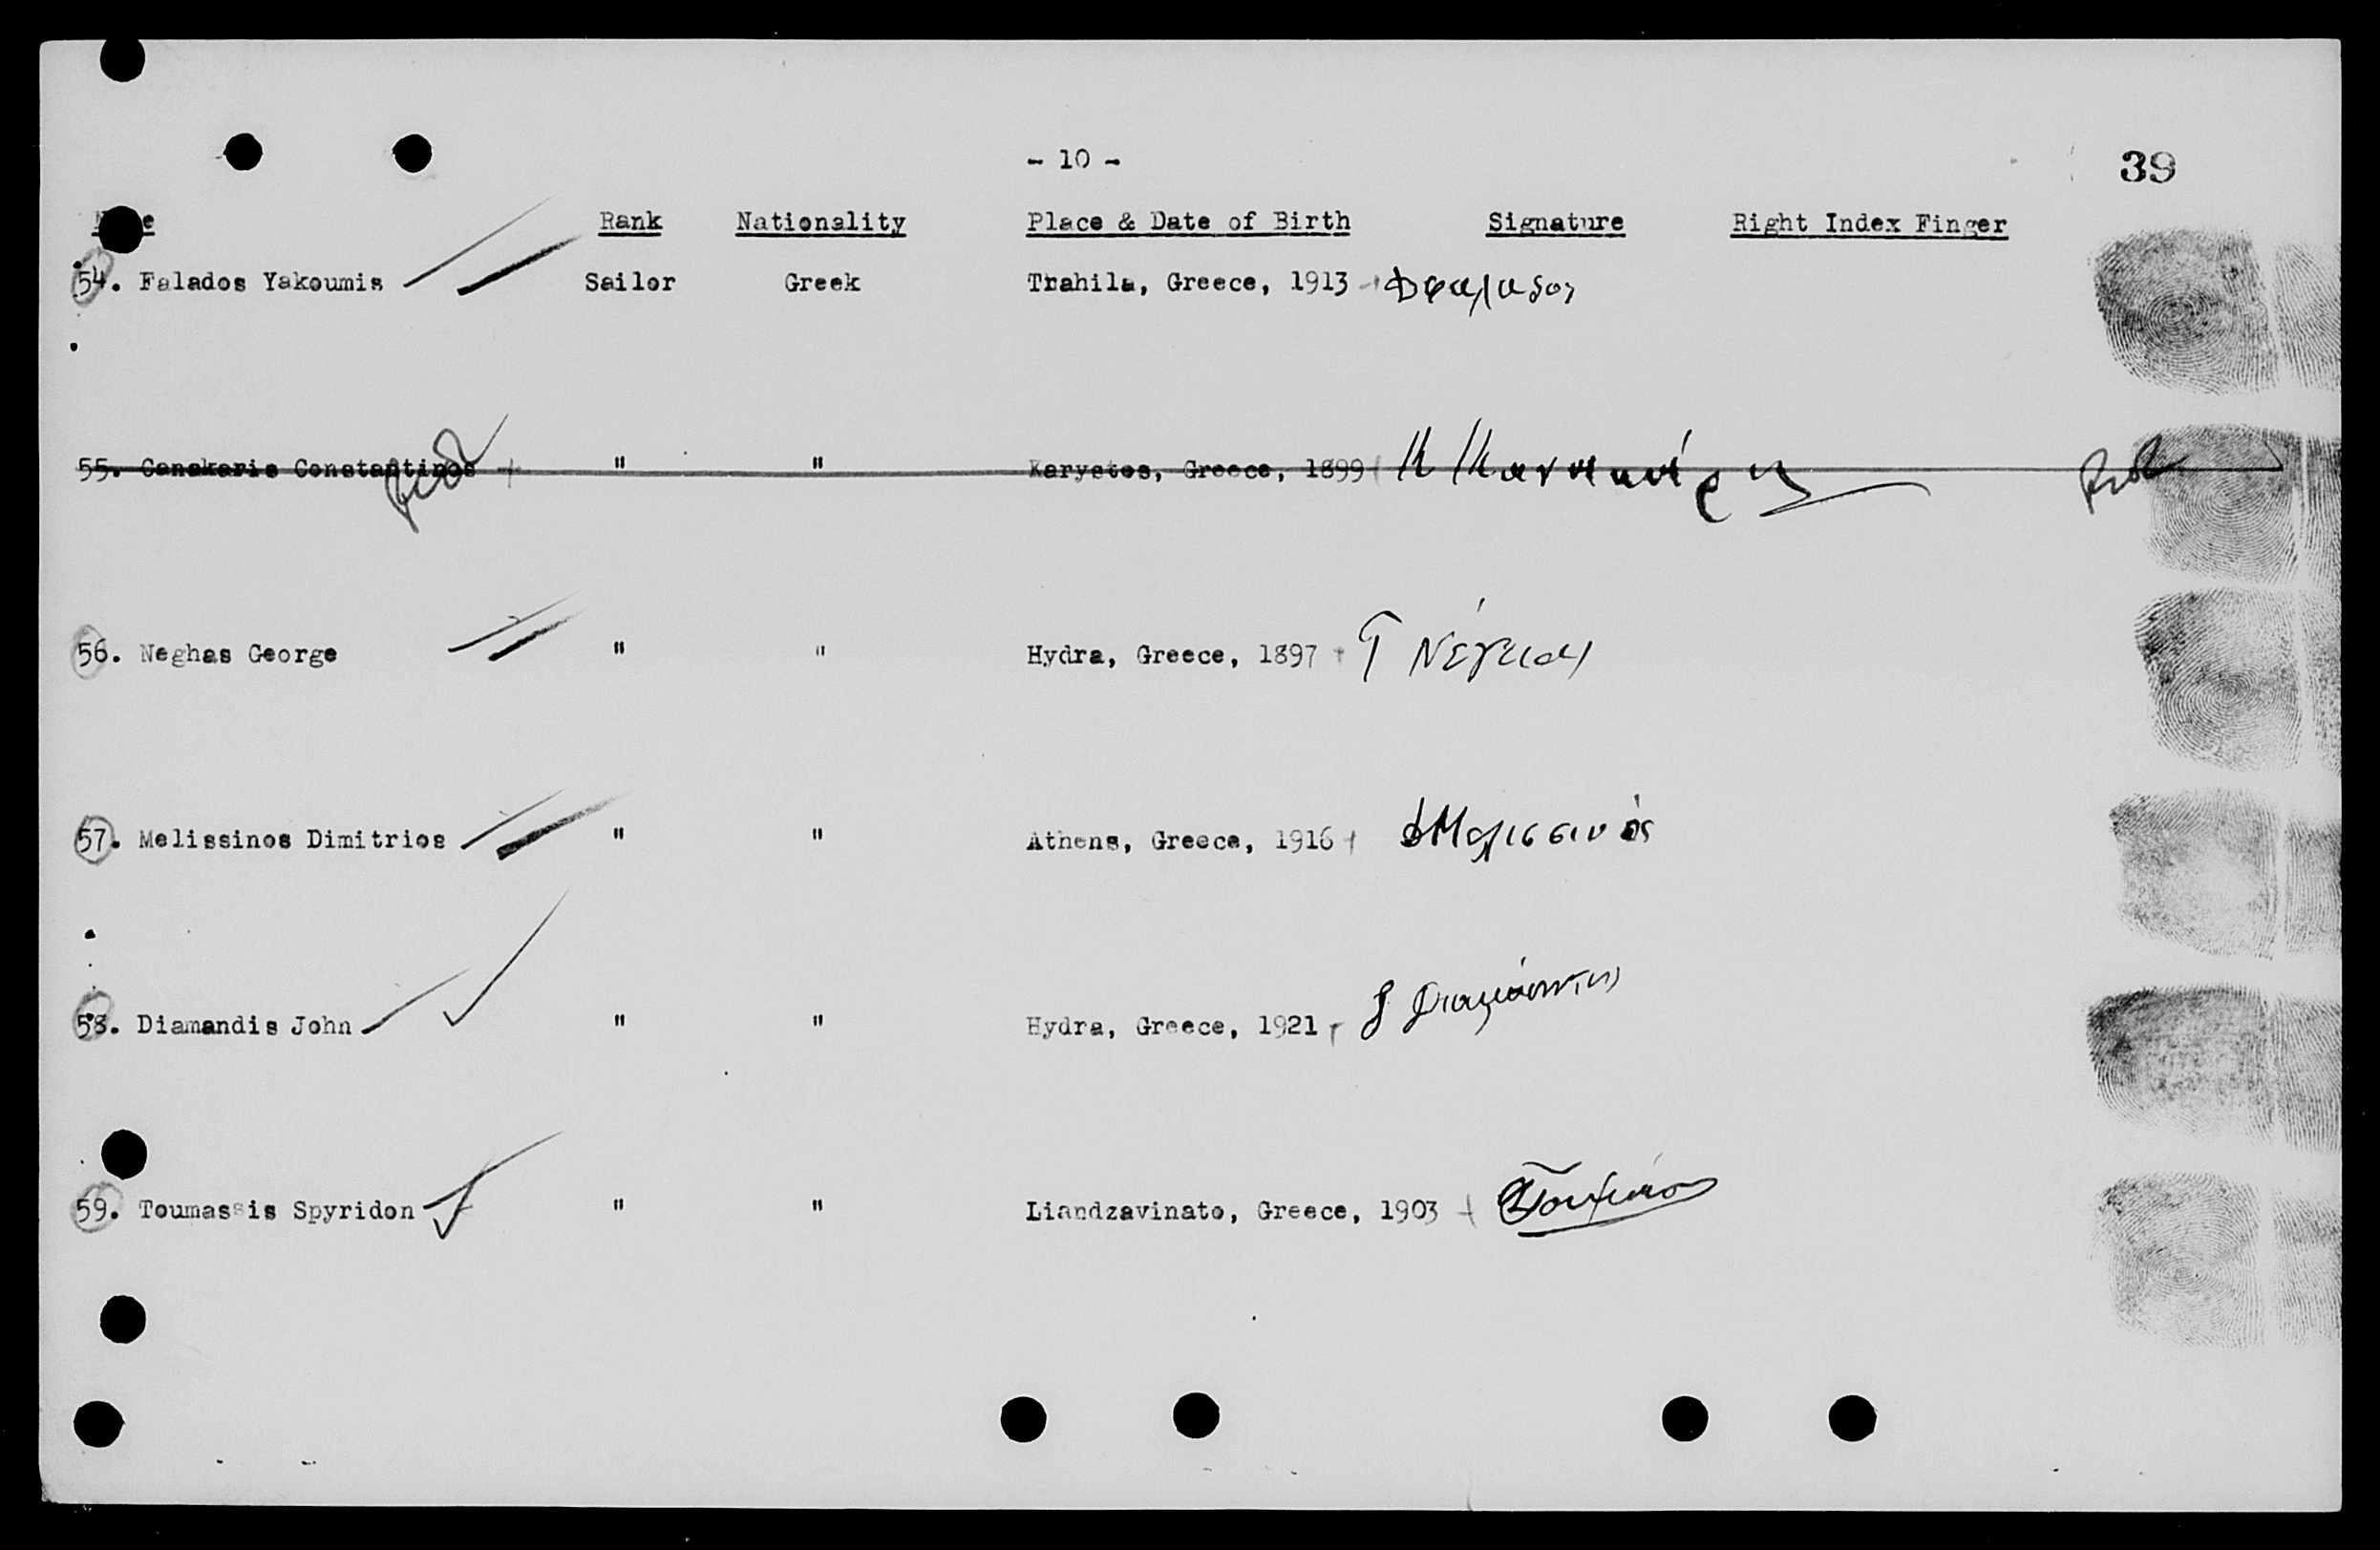 - 10 -
39
Name Rank Nationality Place & Date of Birth Signature Right Index Finger
54. Falados Yakoumis Sailor Greek Trahila, Greece, 1913 Φαλαδος
55. Canakaris Constantinos " " Karystos, Greece, 1899 Κ Κανακάρης
56. Neghas George " " Hydra, Greece, 1897 Γ Νέγκας
57. Melissinos Dimitrios " " Athens, Greece, 1916 ΔΜελισσινός
58. Diamandis John " " Hydra, Greece, 1921 Διαμάντης
59. Toumassis Spyridon " " Liandzavinato, Greece, 1903